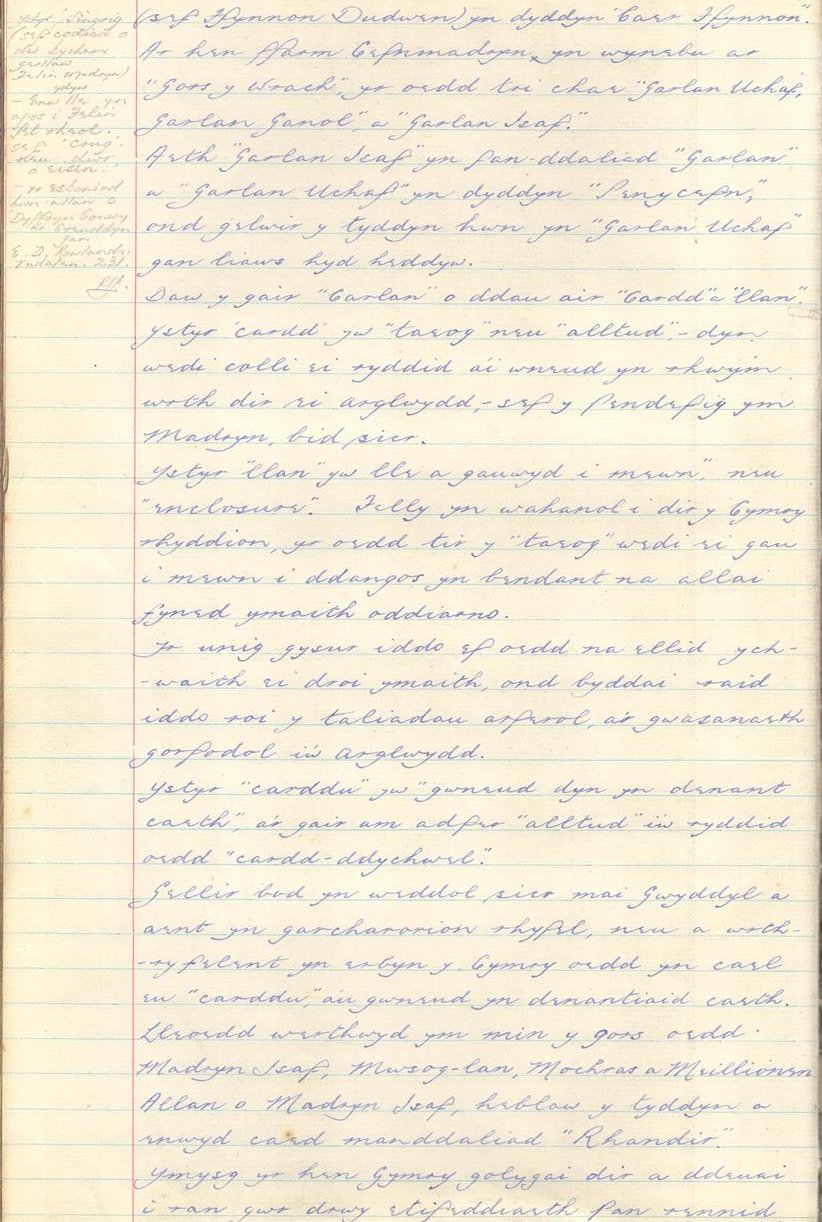 ystyr 'Singrig'
(sef codiad o
dir
gerllaw
Felin Madryn)
ydyw
- Enw lle yn
agos i Felin
fel rheol.
sef 'cong'
neu dŵr,
o eisin.
- yr esboniad
hwn allan o
Dyffryn Conwy
a'r Creuddyn
gan
E. D. Rowlands.
Tudalen. 231.
(sef Ffynnon Dudwen) yn dyddyn "Caer Ffynnon".
Ar hen ffarm Cefnmadryn, yn wynebu ar
"Gors y Wrach", yr oedd tri chae "Garlan Uchaf,
Garlan Ganol", a "Garlan Isaf."
Aeth "Garlan Isaf" yn fan-ddaliad "Garlan"
a "Garlan Uchaf" yn dyddyn "Penycefn",
ond gelwir y tyddyn hwn yn "Garlan Uchaf"
gan liaws hyd heddyw.
Daw y gair "Carlan" o ddau air "Cardd" a "llan".
Ystyr 'cardd' yw "taeog" neu "alltud", - dyn
wedi colli ei ryddid a'i wneud yn rhwym
wrth dir ei arglwydd, - sef y Pendefig ym
Madryn, bid sicr.
Ystyr "llan" yw lle a gauwyd i mewn", neu
"enclosure". Felly yn wahanol i dir y Cymry
rhyddion, yr oedd tir y "taeog" wedi ei gau
i mewn i ddangos yn bendant na allai
fyned ymaith oddiarno.
Yr unig gysur iddo ef oedd na ellid ych-
-waith ei droi ymaith, ond byddai raid
iddo roi y taliadau arferol, a'r gwasanaeth
gorfodol i'w arglwydd.
Ystyr "carddu" yw "gwneud dyn yn denant
caeth", a'r gair am adfer "alltud" i'w ryddid
oedd "cardd-ddychwel".
Gellir bod yn weddol sicr mai Gwyddyl a
aent yn garcharorion rhyfel, neu a wrth-
-ryfelent yn erbyn y Cymry oedd yn cael
eu "carddu", a'u gwneud yn denantiaid caeth.
Lleoedd werthwyd ym min y gors oedd
Madryn Isaf, Mwsog-lan, Mochras a Meillionen
Allan o Madryn Isaf, heblaw y tyddyn a
enwyd caed manddaliad "Rhandir".
Ymysg yr hen Gymry golygai dir a ddeuai
i ran gwr drwy etifeddiaeth pan rennid